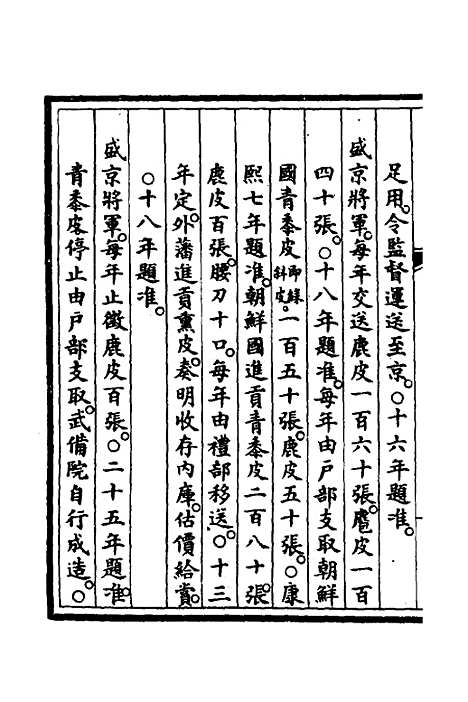 足用。令監督運送至京。○十六年題准。
盛京將軍。每年交送鹿皮一百六十張。麅皮一百
四十張。○十八年題准。每年由戶部支取朝鮮
國青黍皮即綠斜皮。一百五十張。鹿皮五十張。○康
熙七年題准。朝鮮國進貢青黍皮二百八十張。
鹿皮百張。腰刀十口。每年由禮部移送。○十三
年定。外藩進貢熏皮。奏明收存內庫。估價給賞。
○十八年題准。
盛京將軍。每年止徵鹿皮百張。○二十五年題准。
青黍皮停止由戶部支取。武備院自行成造。○